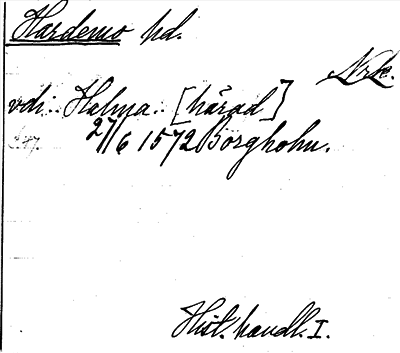 Hardemo hd.
Nrke.
vdi Halma [härad]
27/6 1572 Borgholm.
Hist. handl. I.